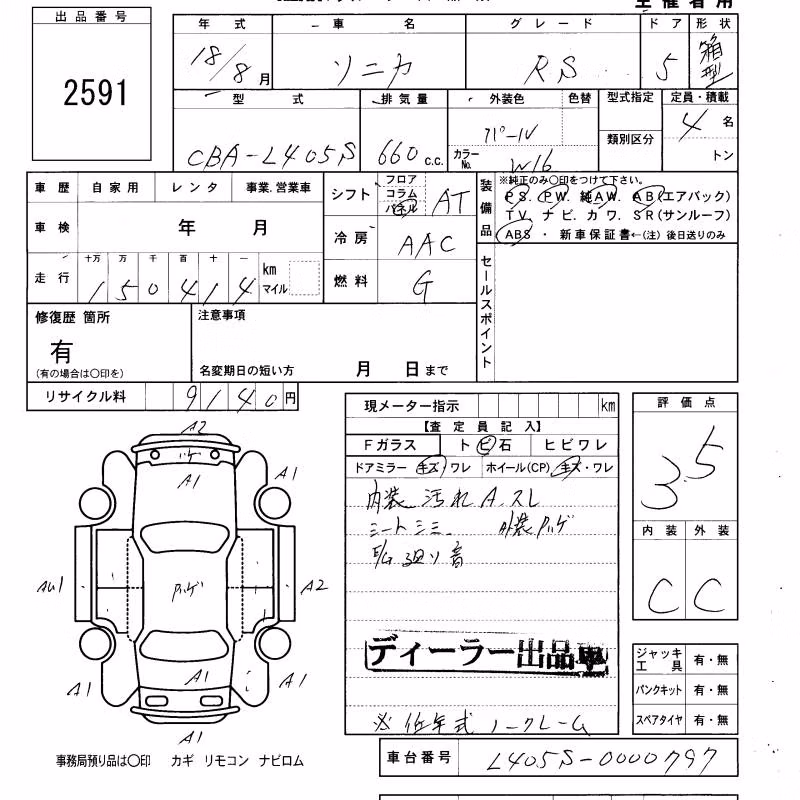 主催者用
出品番号
2591
年式 車名 グレード ドア 形状
18/8月 ソニカ RS 5 箱型
型式 排気量 外装色 色替 型式指定 定員・積載
CBA-L405S 660 c.c. パール カラーNo. W16 類別区分 4名 トン
車歴 自家用 レンタ 事業.営業車
車検 年 月
走行 十万 万 千 百 十 一 km マイル
150414
シフト フロア コラム パネル AT
冷房 AAC
燃料 G
装備品 ※純正のみ〇印をつけて下さい。
PS. PW. 純AW. AB(エアバック)
TV. ナビ. カワ. SR(サンルーフ)
ABS ・ 新車保証書←(注) 後日送りのみ
セールスポイント
修復歴 箇所
有
(有の場合は〇印を)
注意事項
名変期日の短い方 月 日まで
リサイクル料 9140円
現メーター指示 km
【査定員記入】
Fガラス ト ビ 石 ヒビワレ
ドアミラー キズ ワレ ホイール(CP) キズ・ワレ
内装 汚れ A.スレ
シートシミ 外装ハゲ
廻り音
ディーラー出品車
※低年式 ノークレーム
評価点
3.5
内装 外装
C C
ジャッキ工具 有・無
パンクキット 有・無
スペアタイヤ 有・無
車台番号 L405S-0000797
A2
ハゲ
A1
A1
AU1
ハゲ
A2
A1
A1
A1
A1
事務局預り品は〇印 カギ リモコン ナビロム